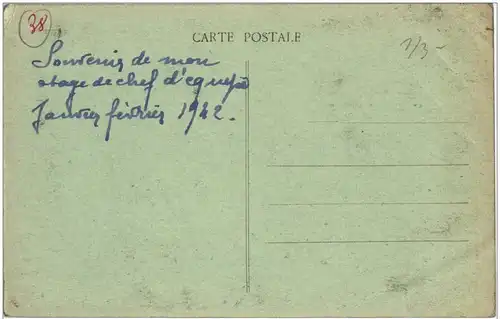 38
CARTE POSTALE
1/3 -
Souvenir de mon
stage de chef d'equipe
Janvier février 1942.